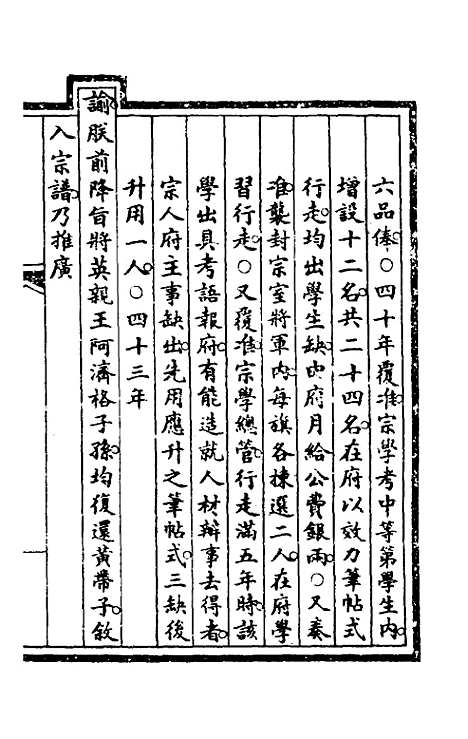 六品俸○四十年覆准宗學考中等第學生内
增設十二名共二十四名在府以效力筆帖式
行走均出學生缺由府月給公費銀兩○又奏
准襲封宗室將軍内每旗各揀選二人在府學
習行走○又覆准宗學總管行走滿五年時該
學出具考語報府有能造就人材辦事去得者
宗人府主事缺出先用應升之筆帖式三缺後
升用一人○四十三年
諭朕前降旨將英親王阿濟格子孫均復還黃帶子敘
入宗譜乃推廣